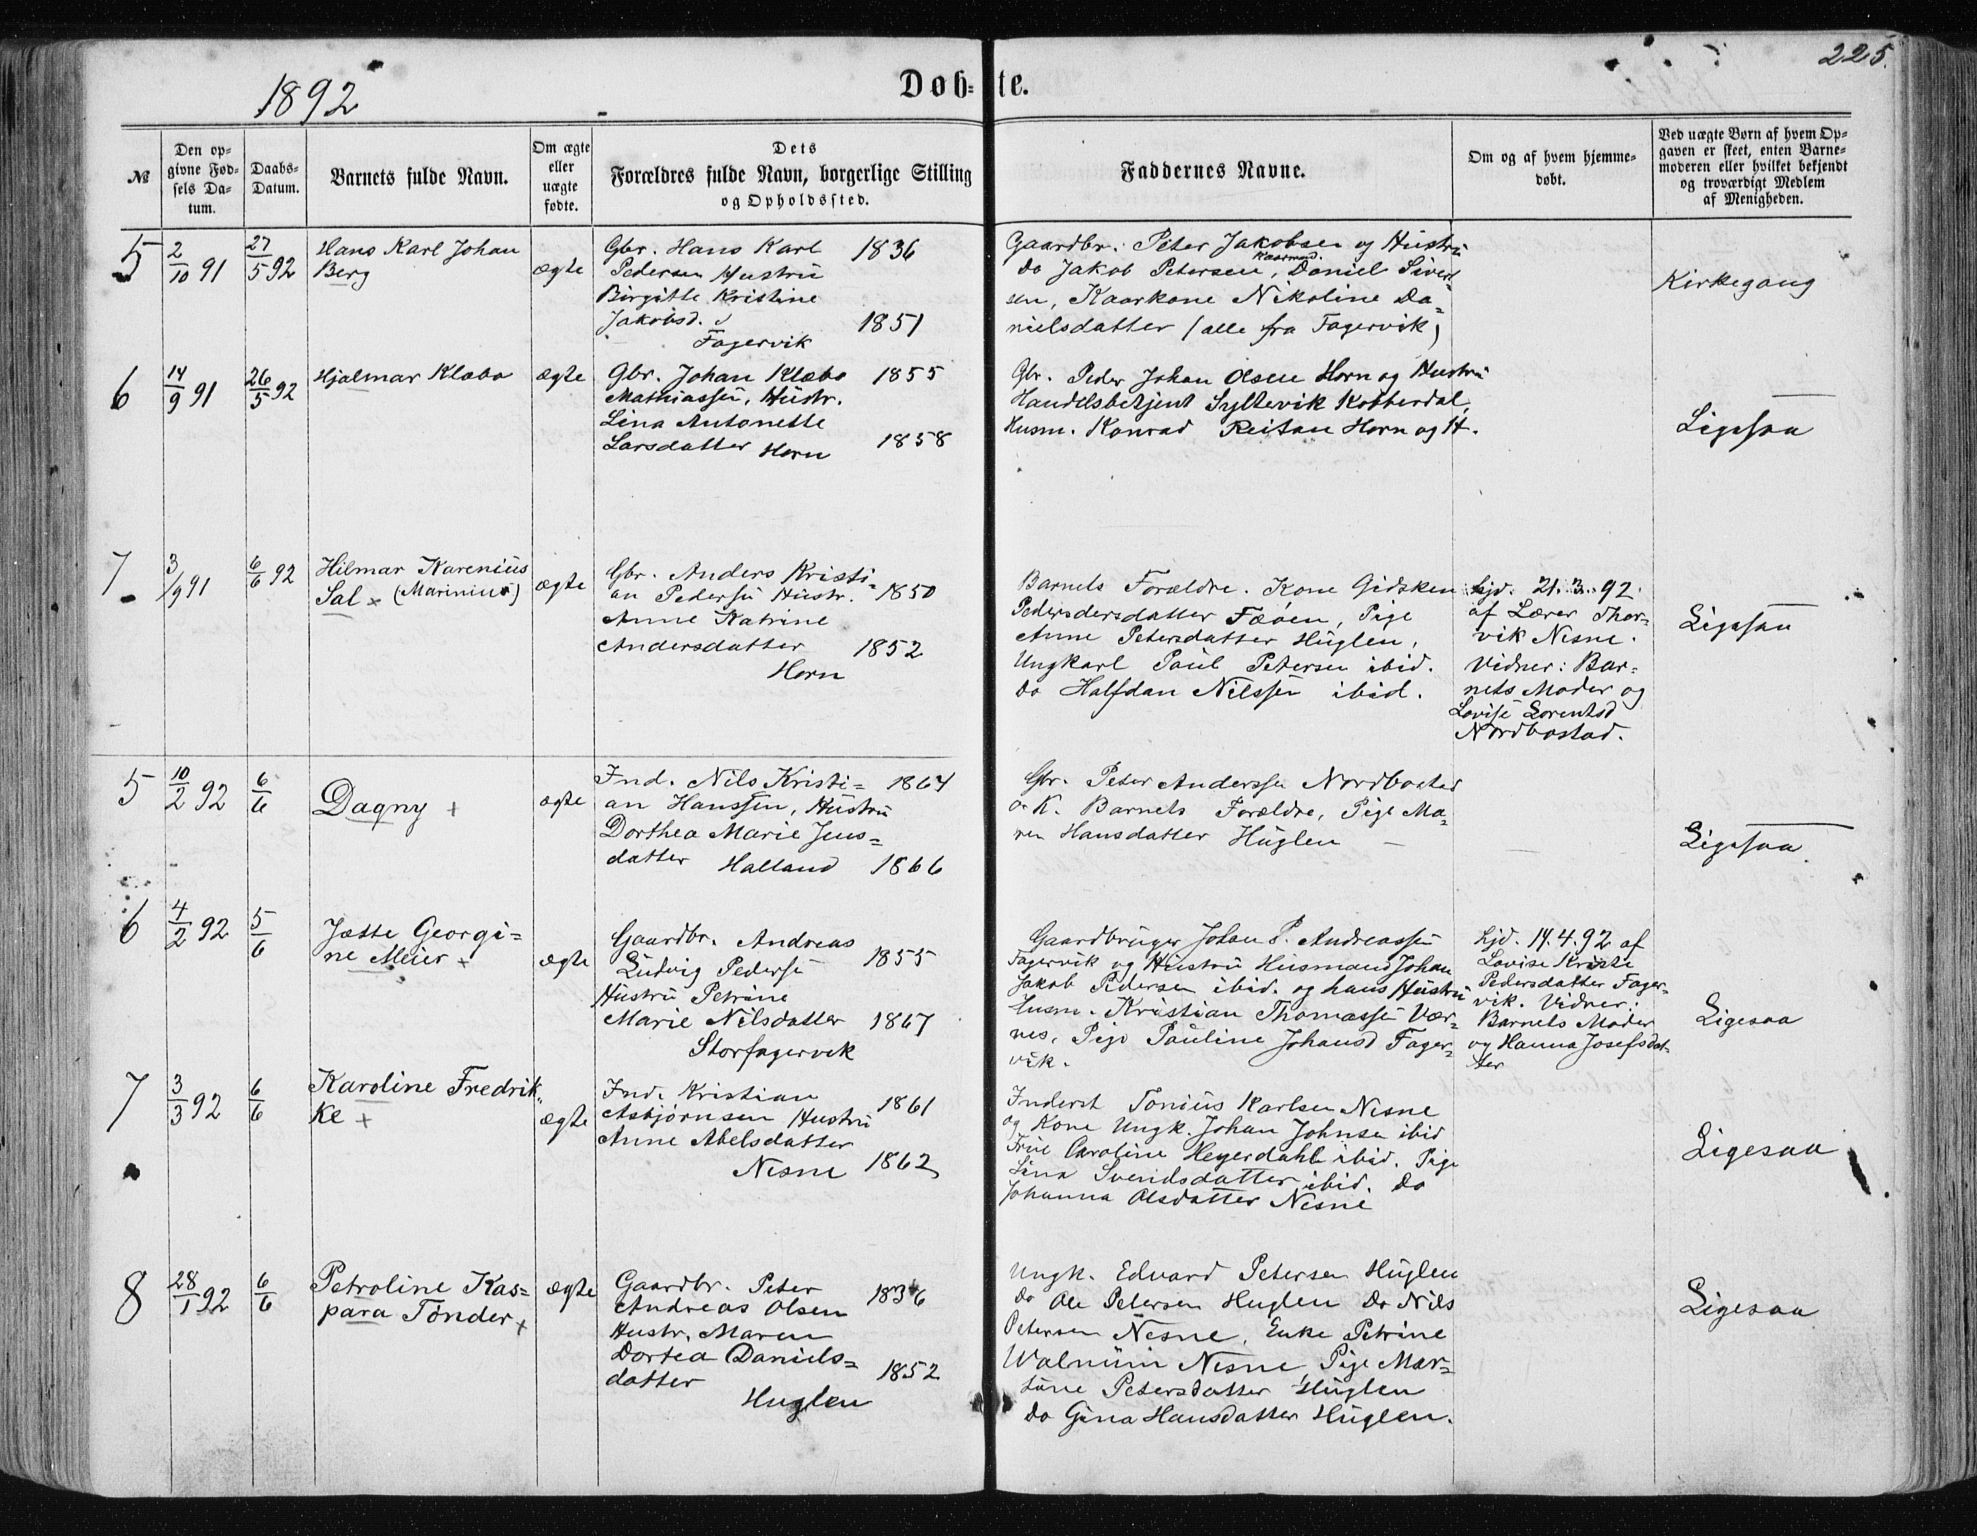 225.
1892
Døb-te.
№
Den op-
givne Fød-
sels Da-
tum.
Daabs-
Datum.
Barnets fulde Navn.
Om ægte
eller
uægte
fødte.
Dets
Forældres fulde Navn, borgerlige Stilling
og Opholdssted.
Faddernes Navne.
Om og af hvem hjemme-
døbt.
Ved uægte Børn af hvem Op-
gaven er skeet, enten Barne-
moderen eller hvilket bekjendt
og troværdigt Medlem
af Menigheden.
5
2/10 91
27/5 92
Hans Karl Johan
Berg
ægte
Gbr. Hans Karl 1836
Pedersen Hustru
Birgitte Kristine
Jakobsd. 1851
Fagervik
Gaardbr. Peter Jakobsen og Hustru
Kaarmand.
do Jakob Petersen, Daniel Sivert-
sen, Kaarkone Nikoline Da-
nielsdatter (alle fra Fagervik)
Kirkegang
6
14/9 91
26/5 92
Hjalmar Klæbo
ægte
Gbr. Johan Klæbo 1855
Mathiassen, Hustr.
Lina Antonette
Larsdatter Horn 1858
Gbr. Peder Johan Olsen Horn og Hustru
Handelsbetjent Syltevik Kobberdal,
Husm. Konrad Reitan Horn og H.
Ligesaa
7
3/9 91
6/6 92
Hilmar Karenius
Sal x (Marinius)
ægte
Gbr. Anders Kristi-
an Pedersen Hustr. 1850
Anne Katrine
Andersdatter 1852
Horn
Barnets Forældre. Kone Gidsken
Pedersdersdatter Fæøen, Pige
Anne Petersdatter Huglen,
Ungkarl Paul Petersen ibid.
do Halfdan Nilssen ibid.
hjd. 21.3.92.
af Lærer Thor-
vik Nesne.
Vidner: Bar-
nets Moder og
Lovise Lorentsd
Nordbostad.
Ligesaa
5
10/2 92
6/6
Dagny +
ægte
Ind. Nils Kristi- 1864
an Hanssen, Hustru
Dorthea Marie Jens-
datter Halland 1866
Gbr. Peter Anderssen Nordbostad
o. K. Barnets Forældre, Pige Ma-
ren Hansdatter Huglen —
—
Ligesaa
6
4/2 92
5/6
Jætte Georgi-
ne Meier x
ægte
Gaardbr. Andreas
Ludvig Pedersen 1855
Hustru Petrine
Marie Nilsdatter 1867
Storfagervik
Gaardbruger Johan P. Andreassen
Fagervik og Hustru Husmand Johan
Jakob Pedersen ibid. og hans Hustru
Husm. Kristian Thomassen Vær-
nes, Pige Pauline Johansd Fager-
vik.
hjd. 14.4.92 af
Lovise Kriste
Pedersdatter Fager-
vik. Vidner:
Barnets Moder
og Hanna Josefsdat-
ter
Ligesaa
7
3/3 92
6/6
Karoline Fredrik-
ke +
ægte
Ind. Kristian
Asbjørnsen Hustru 1861
Anne Abelsdatter
Nesne 1862
Inderst Tønius Karlsen Nesne
og Kone Ungk. Johan Johnsen ibid
Frue Caroline Heyerdahl ibid. Pige
Lina Svendsdatter ibid. Do
Johanna Olsdatter Nesne
Ligesaa
8
28/1 92
6/6
Petroline Kas-
para Tønder +
ægte
Gaardbr. Peter
Andreas Olsen 1836
Hustr. Maren
Dortea Daniels-
datter 1852
Huglen
Ungk. Edvard Petersen Huglen
Do Ole Petersen Huglen Do Nils
Petersen Nesne, Enke Petrine
Walnum Nesne, Pige Mar-
tine Petersdatter Huglen
do Gina Hansdatter Huglen.
Ligesaa